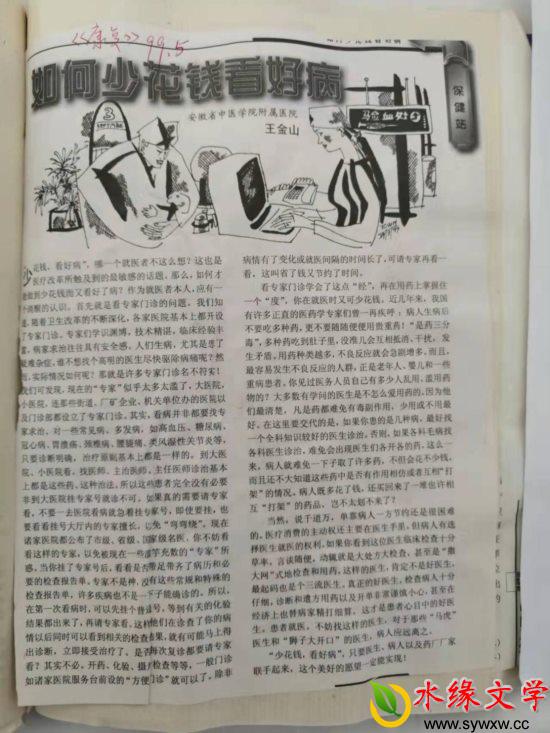 《康复》99.5
如何少花钱看好病
保健站
安徽省中医学院附属医院
王金山
少花钱、看好病”，哪一个就医者不这么想？这也是
医疗改革所触及到的最敏感的话题。那么，如何才
能做到少花钱而又看好了病？作为就医者本人，应有一
个清醒的认识。首先就是看专家门诊的问题，我们知
道，随着卫生改革的不断深化，各家医院基本上都开设
了专家门诊。专家们学识渊博，技术精湛，临床经验丰
富，病家求治往往具有安全感，人们生病，尤其是患了
疑难杂症，谁不想找个高明的医生尽快驱除病痛呢？然
而，实际情况如何呢？那就是许多专家门诊名不符实！
我们可发现，现在的“专家”似乎太多太滥了，大医院、
小医院，连那些街道、厂矿企业、机关单位办的医院以
及门诊部都设立了专家门诊。其实，看病并非都要找专
家求治，对一些常见病、多发病，如高血压、糖尿病、
冠心病、胃溃疡、颈椎病、腰腿痛、类风湿性关节炎等，
只要诊断明确，治疗原则基本上都是一样的。到大医
院、小医院看，找医师、主治医师、主任医师诊治基本
上都是这些药、这种治法，所以这些患者完全没有必要
非到大医院挂专家号就诊不可。如果真的需要请专家
看，不要一去医院看病就急看挂专家号，即使要挂，也
要看看挂号大厅内的专家擅长，以免“弯弯绕”。现在
诸家医院都公布了市级、省级、国家级名医，你不妨看
看这样的专家，以免被现在一些滥竽充数的“专家”所
惑。当你挂了专家号后，看看是否带足带齐了病历和必
要的检查报告单，专家不是神，没有这些常规和特殊的
检查报告单，许多疾病也不是一下子能确诊的。所以，
在第一次看病时，可以先挂个普诊号，等到有关的化验
结果都出来了，再请专家看，这样他们在诊查了你的病
情以后同时可以看到相关的检查结果，就有可能马上得
出诊断，立即接受治疗了。是否每次复诊都要请专家
看？其实不必，开药、化验、摄片检查等等，一般门诊
如诸家医院服务台前设的“方便门诊”就可以了，除非
病情有了变化或就医间隔的时间长了，可请专家再看一
看，这叫省了钱又节约了时间。
看专家门诊学会了这点“经”，再在用药上掌握住
一个“度”，你在就医时又可少花钱。近几年来，我国
有许多正直的医药学专家们曾一再疾呼：病人生病后
不要吃多种药，更不要随随便便用贵重药！“是药三分
毒”，多种药吃到肚子里，没准儿会互相抵消、干扰，发
生矛盾，用药种类越多，不良反应就会急剧增多，而且，
最容易发生不良反应的人群，正是老年人、婴儿和一些
重病患者。你见过医务人员自己有多少人乱用、滥用药
物的？大多数有学问的医生是不怎么爱用药的，因为他
们最清楚，凡是药都难免有毒副作用，少用或不用最
好。在这里要交代的是，如果你患的是几种病，最好找
一个全科知识较好的医生诊治，否则，如果各科毛病找
各科医生诊治，难免会出现医生们各开各的药。这么一
来，病人就难免一下子取了许多药，不但会花不少钱，
而且还不大知道这些药中是否有作用相仿或者互相“打
架”的情况，病人既多花了钱，还买回来了一堆也许相
互“打架”的药品，岂不太划不来了？
当然，说千道万，单靠病人一方节约还是很困难
的。医疗消费的主动权还主要在医生手里，但病人有选
择医生就医的权利。如果你看到这位医生临床检查十分
草率，言谈随便，动辄就是大处方大检查，甚至是“撒
大网”式地检查和用药，这样的医生，肯定不是好医生，
最起码也是个三流医生。真正的好医生，检查病人十分
仔细，诊断和遣方用药以及开单非常谨慎小心，甚至在
经济上也替病家精打细算。这才是患者心目中的好医
生。患者就医，不妨找这样的医生，对于那些“马虎”
医生和“狮子大开口”的医生，病人应远离之。
“少花钱，看好病”，只要医生、病人以及药厂厂家
联手起来，这个美好的愿望一定能实现！
水缘文学
www.sywxw.cc